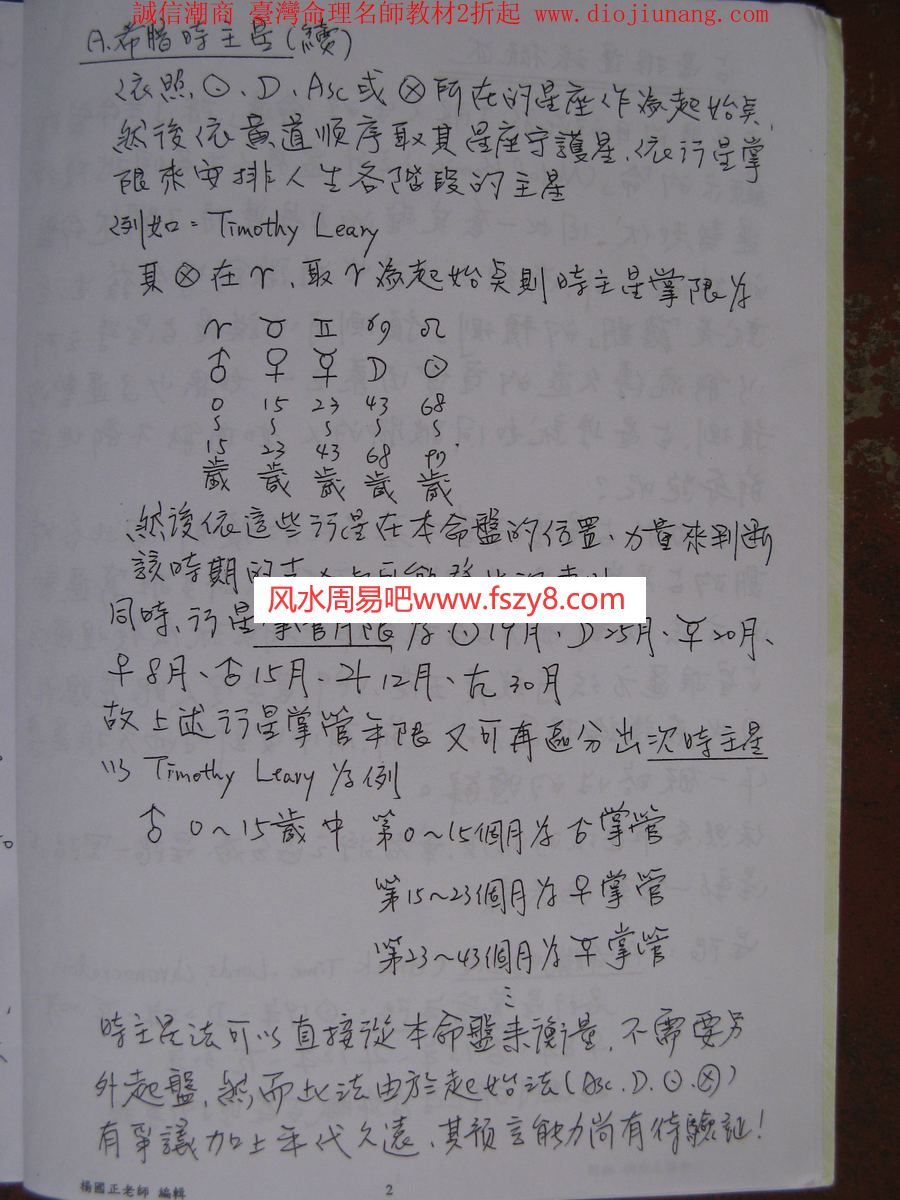 誠信潮商 臺灣命理名師教材2折起 www.diojiunang.com
A.希腊時主星(續)
依照☉、☽、Asc或⊗所在的星座作為起始点,
然後依黃道順序取其星座守護星,依行星掌
限來安排人生各階段的主星
例如:Timothy Leary
其⊗在♈,取♈為起始点則時主星掌限为
♈ ♉ ♊ ♋ ♌
♂ ♀ ☿ ☽ ☉
0 15 23 43 68
~ ~ ~ ~ ~
15 23 43 68
歲 歲 歲 歲 歲
然後依這些行星在本命盤的位置、力量來判断
該時期的
风水周易吧www.fszy8.com
同時、行星掌管月限为☉19月、☽25月、☿20月、
♀8月、♂15月、♃12月、♄30月
故上述行星掌管年限又可再區分出次時主星
以Timothy Leary为例
♂ 0~15歲中 第0~15個月为♂掌管
第15~23個月为♀掌管
第23~43個月为☿掌管
⋮
時主星法可以直接從本命盤來衡量,不需要另
外起盤,然而此法由於起始法(Asc.☽.☉.⊗)
有爭議加上年代久遠、其預言能力尚有待驗証!
楊國正老師 編輯
2